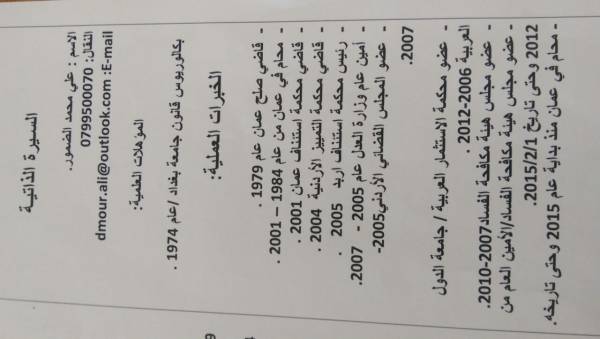 السيرة الذاتية
الاسم : علي محمد الضمور.
النقال: 0799500070
E-mail: dmour.ali@outlook.com
المؤهلات العلمية:
بكالوريوس قانون جامعة بغداد /عام 1974 .
الخبرات العملية:
- قاضي صلح عمان عام 1979 .
- محام في عمان من عام 1984 – 2001 .
- قاضي محكمة استئناف عمان 2001 .
- قاضي محكمة التمييز الأردنية 2004 .
- رئيس محكمة استئناف اربد 2005 .
- أمين عام وزارة العدل عام 2005 - 2007 .
- عضو المجلس القضائي الأردني2005-
2007.
- عضو محكمة الاستثمار العربية / جامعة الدول
العربية 2006-2012 .
- عضو مجلس هيئة مكافحة الفساد2007-2010.
- عضو مجلس هيئة مكافحة الفساد/الأمين العام من
2012 وحتى تاريخ 2015/2/1.
- محام في عمان منذ بداية عام 2015 وحتى تاريخه.